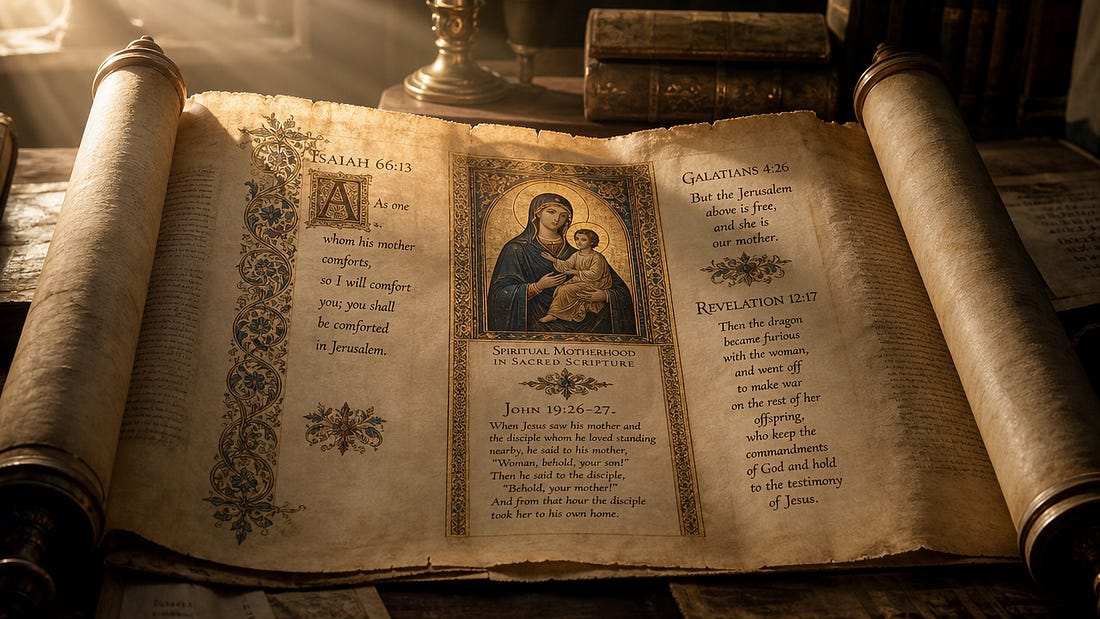 ISAIAH 66:13
A As one
a.
whom his mother
comforts,
so I will comfort
you; you shall
be comforted
in Jerusalem.
SPIRITUAL MOTHERHOOD
IN SACRED SCRIPTURE
JOHN 19:26–27.
When Jesus saw his mother and
the disciple whom he loved standing
nearby, he said to his mother,
"Woman, behold, your son!"
Then he said to the disciple,
"Behold, your mother!"
And from that hour the disciple
took her to his own home.
GALATIANS 4:26
But the Jerusalem
above is free,
and she is
our mother.
REVELATION 12:17
Then the dragon
became furious
with the woman,
and went off
to make war
on the rest of her
offspring,
who keep the
commandments
of God and hold
to the testimony
of Jesus.